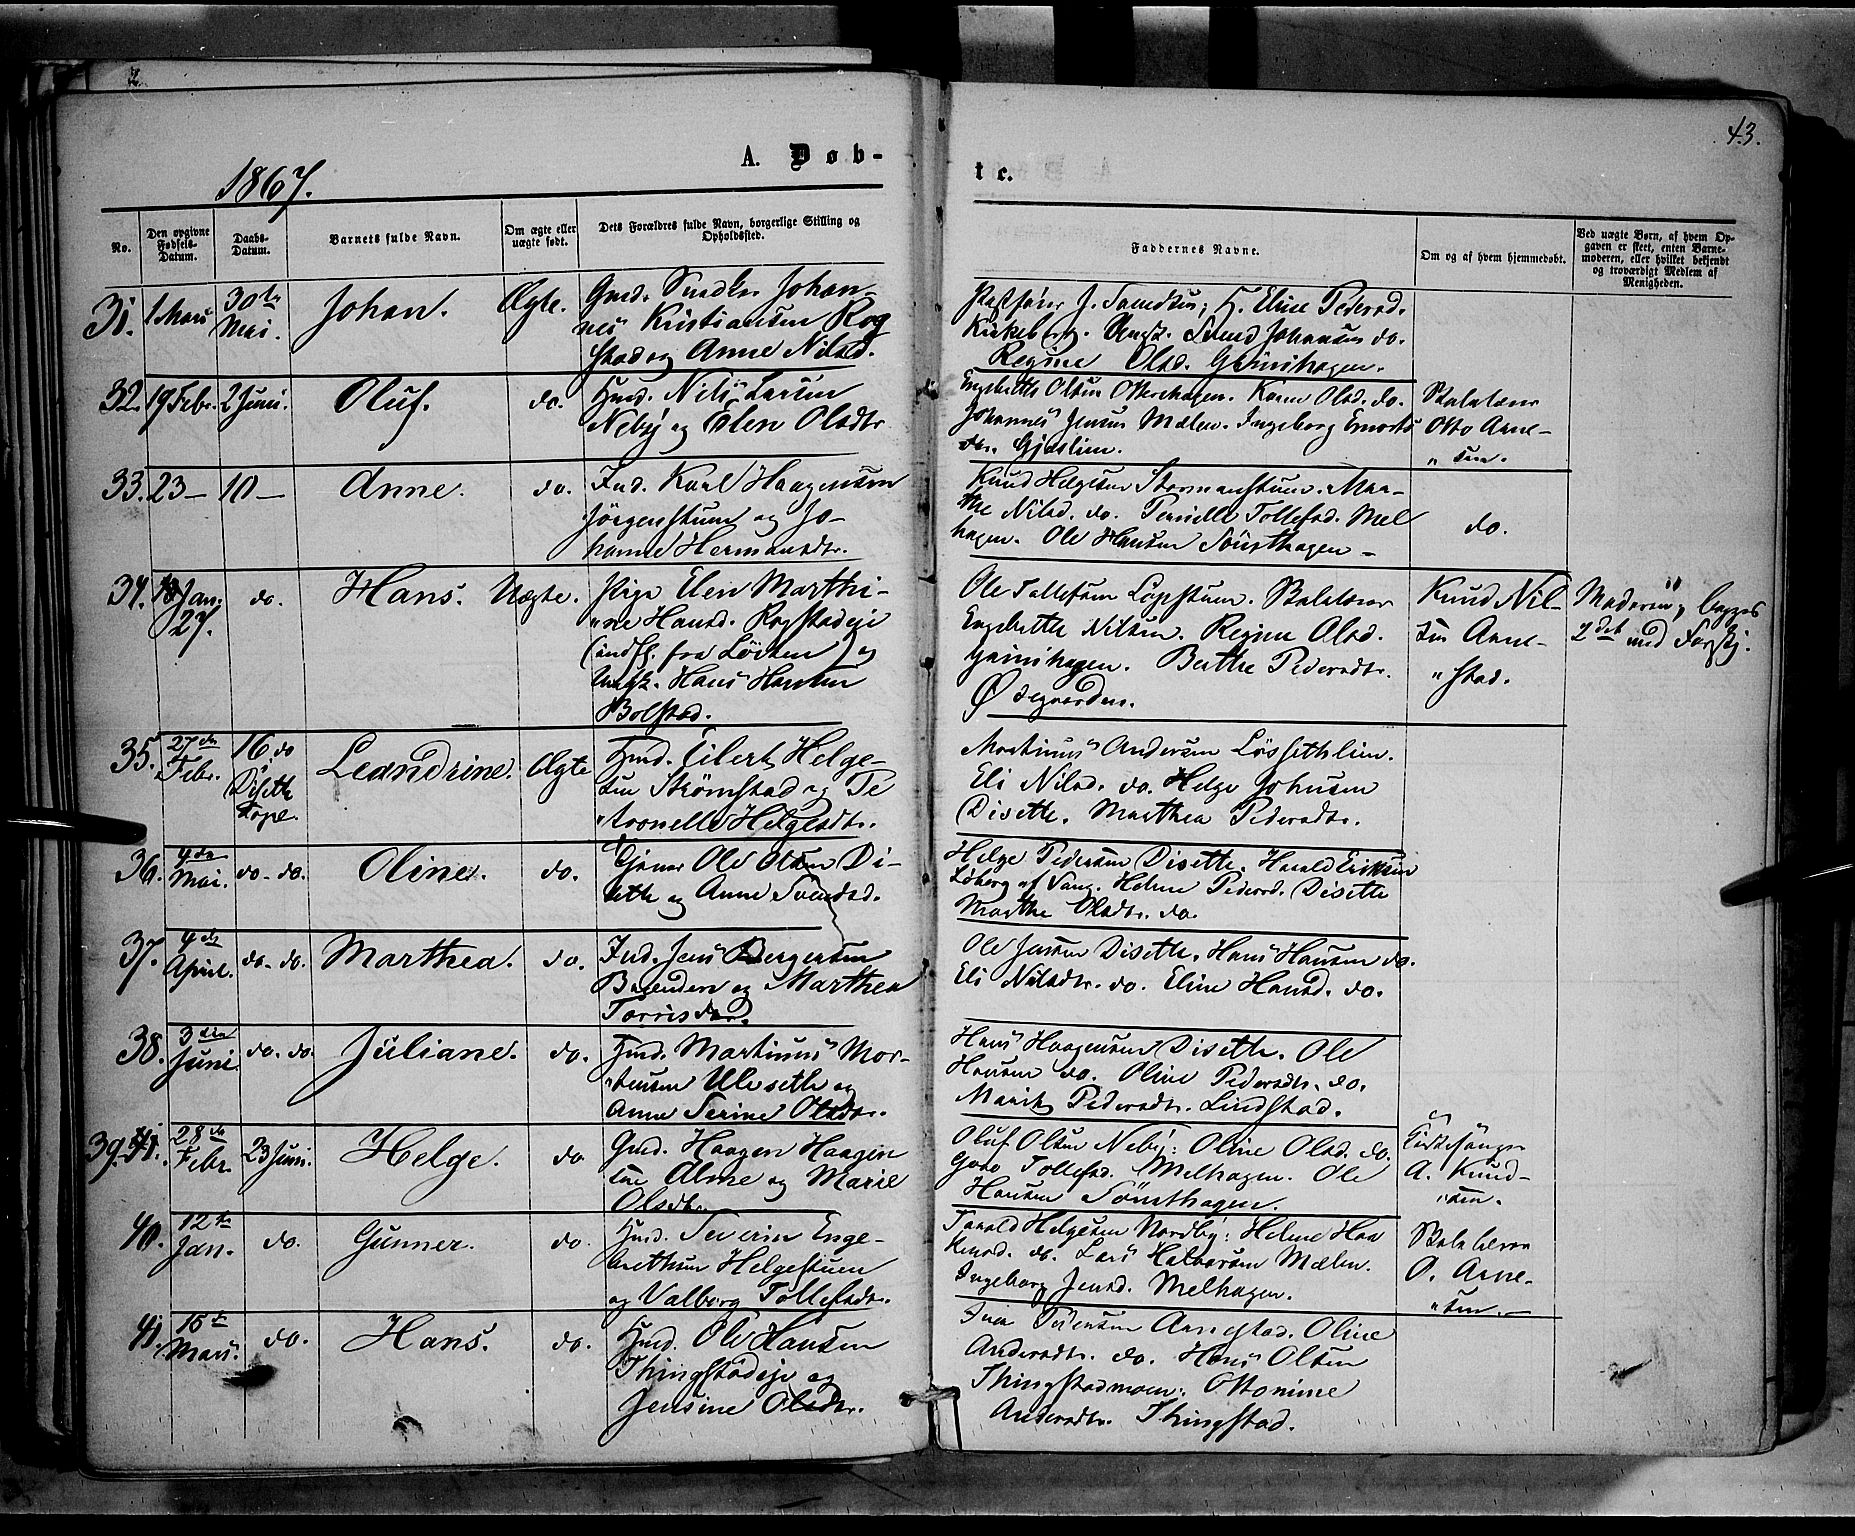 2
43.
1867.
A. Døb-
te.
No.
Den opgivne Fødsels-Datum.
Daabs-Datum.
Barnets fulde Navn.
Om ægte eller uægte født.
Dets Forældres fulde Navn, borgerlige Stilling og Opholdssted.
Faddernes Navne.
Om og af hvem hjemmedøbt.
Ved uægte Børn, af hvem Opgaven er skeet, enten Barnemoderen, eller hvilket bekjendt og troværdigt Medlem af Menigheden.
31. 1 Mars 30te Mai. Johan. Ægte.
Gmd. Snedker Johan-
nes Kristiansen Rog
stad og Anne Nilsd.
J. Svendsen; H. Eline Pedersd.
Kirkeberg. Ungk. Svend Johansen do.
Regine Olsd. Gaunihagen.
32. 19 Febr. 2 Juni. Oluf. do.
Hmd. Nils Larsen
Neby og Elen Olsdtr
Engebreth Olsen Otterhagen. Karen Olsd. do.
Johannes Jensen Mælen. Ingeborg
dtr. Gjæslien.
Skolelærer
Otto Arne-
"sen.
33. 23 - 10 - Anne. do.
Ind. Karl Haagensen
Jørgenstuen og Jo-
hanne Hermansdtr.
Knud Helgesen Stormanstuen. Mar-
the Nilsd. do. Pernille Tollefsd. Mel
hagen. Ole Hansen Sønsthagen -
do.
34. Jan. 27. do. Hans. Uægte.
Pige Elen Marthi-
"ne Hansd. Rogstadeje
(indfl. fra Løiten) og
Ungk. Hans Hansen
Bolstad.
Ole Tollefsen Løpstuen. Skolelærer
Engebreth Nilsen. Regine Olsd.
Gaunihagen. Berthe Pedersdtr.
Ødegaarden.
Knud Nil-
sen Arne-
"stad.
Moderen; begges
2det med Forskj.
35. 27de Febr. 16. do i Diseth Kape. Leandrine. Ægte
Hmd. Eilert Helge-
sen Strømstad og Pe
"tronelle Helgesdtr.
Martinus Andersen Løssethlien.
Eli Nilsd. do. Helge Johnsen
Disette. Marthea Pedersdtr.
36. 9de Mai. do. do. Oline. do.
Ejener Ole Olsen Di-
sette og Anne Svendsd.
Helge Pedersen Disette. Harald Eriksen
Løberg af Vang. Helene Pedersd. Disette
Marthe Olsdtr. do.
37. 9de April. do. do. Marthea. do.
Ind. Jens Bergersen
Brænden og Marthea
Torrisdtr.
Ole Jensen Disette. Hans Hansen do.
Eli Nilsdtr. do. Eline Hansd. do.
38. 3die Juni do. do. Juliane. do.
Hmd. Martinus Mor-
"tensen Ulvseth og
Anne Serine Olsdtr.
Hans Haagensen Disette. Ole
Hansen do. Oline Pedersdtr. do.
Marit Pedersdtr. Lindstad.
39. 28de Febr. 23 Juni. Helge. do
Gmd. Haagen Haagen
sen Alme og Marie
Olsdtr.
Oluf Olsen Neby; Oline Olsd. do.
Guro Tollefsd. Melhagen. Ole
Hansen Sønsthagen.
Kirkesanger
A. Knud-
"sen.
40. 12te Jan. do. Gunner. do.
Hmd. Severin Enge-
brethsen Helgestuen
og Valborg Tollefsdtr.
Harald Helgesen Nordby; Helene Haa
kensd. do. Lars Halvorsen Mælen.
Ingeborg Jensd. Melhagen.
Skolelærer
O. Arne-
"sen.
41. 15de Mars. do. Hans. do.
Hmd. Ole Hansen
Thingstadeje og
Jensine Olsdtr.
Iver Pedersen Arnestad. Oline
Andersdtr. do. Hans Olsen
Thingstadmoen; Ottomine
Andersdtr. Thingstad.